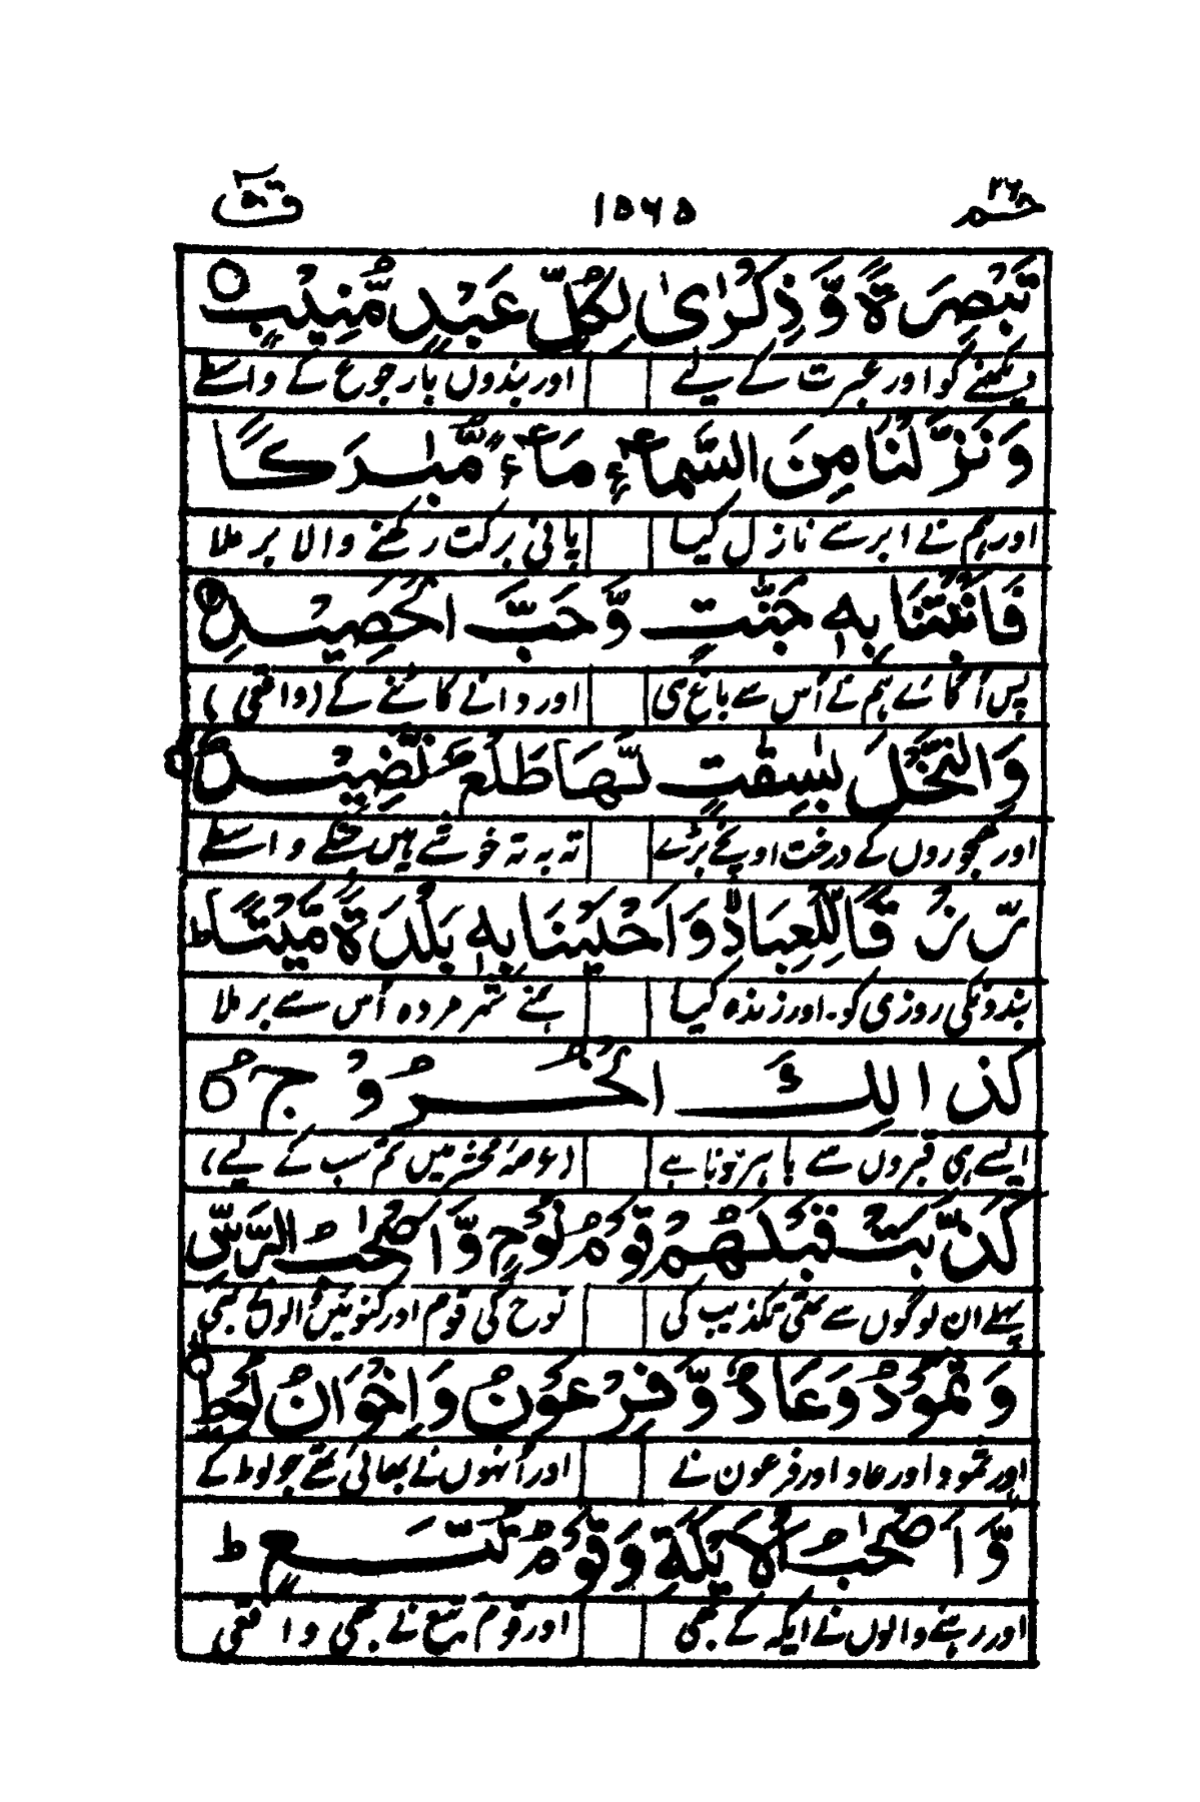 حٰم ٢٦ ١٥٦٥ قٓ ٥٠
تَبْصِرَةً وَّذِكْرٰى لِكُلِّ عَبْدٍ مُّنِيْبٍ ○
دیکھنے کو اور عبرت کے لیے اور بندوں بار جوع کے واسطے
وَنَزَّلْنَا مِنَ السَّمَآءِ مَآءً مُّبٰرَكًا
اور ہم نے ابر سے نازل کیا پانی برکت رکھنے والا بر ملا
فَاَنْۢبَتْنَا بِهٖ جَنّٰتٍ وَّحَبَّ الْحَصِيْدِ
پس اُگائے ہم نے اُس سے باغ ہی اور دانے کاٹنے کے (واقعی)
وَالنَّخْلَ بٰسِقٰتٍ لَّهَا طَلْعٌ نَّضِيْدٌ
اور کھجوروں کے درخت اونچے بڑے تہ بہ تہ خوشے ہیں جنکے واسطے
رِّزْقًا لِّلْعِبَادِ وَاَحْيَيْنَا بِهٖ بَلْدَةً مَّيْتًا ط
بندونکی روزی کو۔ اور زندہ کیا ہمنے شہر مردہ اُس سے بر ملا
كَذٰلِكَ الْخُرُوْجُ ○
ایسے ہی قبروں سے باہر ہونا ہے (عرصۂ محشر میں تم سب کے لیے)
كَذَّبَتْ قَبْلَهُمْ قَوْمُ نُوْحٍ وَّاَصْحٰبُ الرَّسِّ
پہلے ان لوگوں سے تھی تکذیب کی نوح کی قوم اور کنوئیں والوں نے بھی
وَثَمُوْدُ وَعَادٌ وَّفِرْعَوْنُ وَاِخْوَانُ لُوْطٍ
اور ثمود اور عاد اور فرعون نے اور اُنہوں نے بھائی تھے جو لوط کے
وَّاَصْحٰبُ الْاَيْكَةِ وَقَوْمُ تُبَّعٍ ط
اور رہنے والوں نے ایکہ کے بھی اور قوم تبع نے بھی واقعی